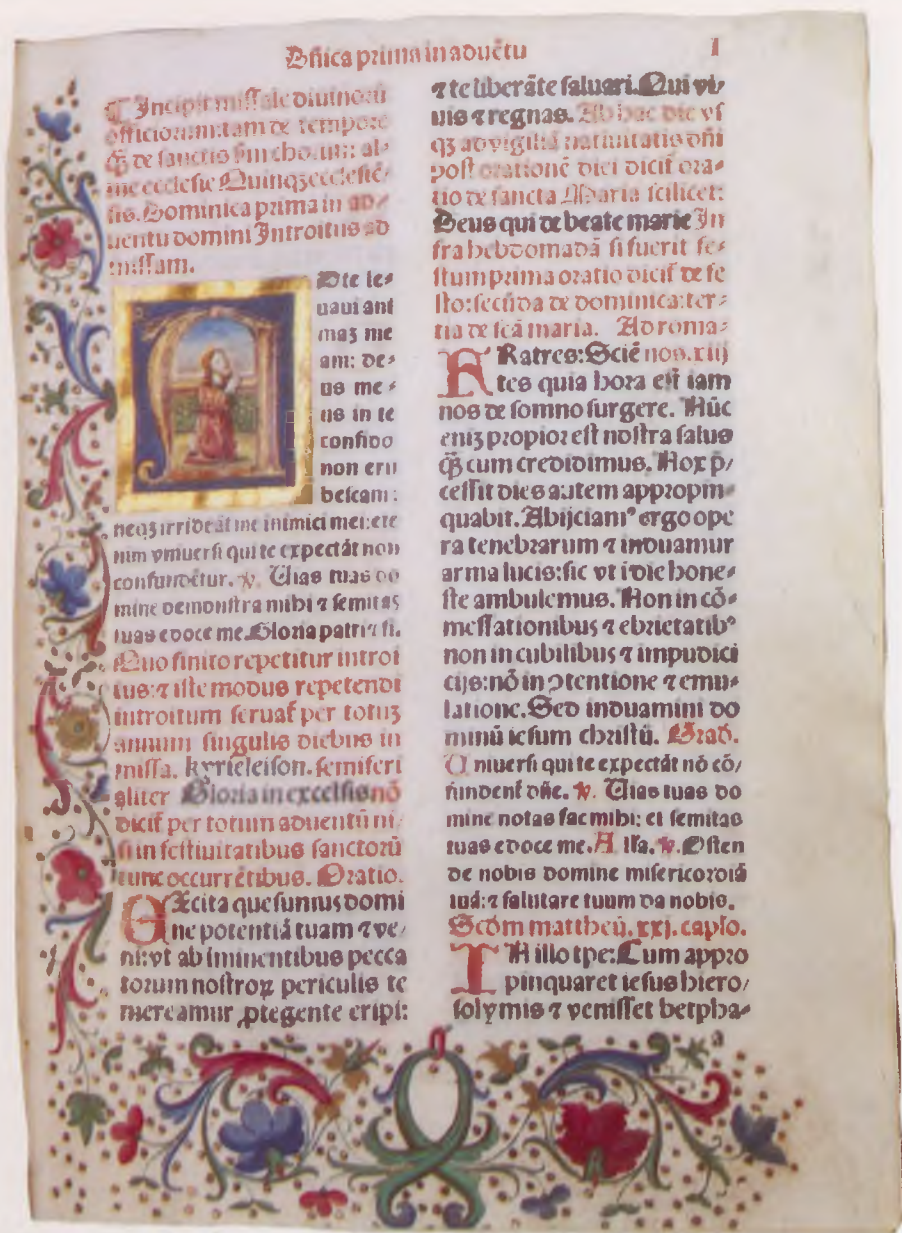 Dñica prima in aduētu I
¶ Incipit missale diuinorū
officiorum: tam de tempore
q̃ de sanctis
me ecclesie Quinqꝫecclesiē⸗
sis. Dominica prima in ad⸗
uentu domini Introitus ad
missam.
D te le⸗
uaui ani
maꝫ me
am: de⸗
us me⸗
us in te
confido
non eru
bescam:
neqꝫ irrideāt me inimici mei: ete
nim vniuersi qui te expectāt non
confundētur. ℣. Uias tuas do
mine demonstra mihi ⁊ semitas
tuas edoce me. Gloria patri ⁊ fi.
Quo finito repetitur introi
tus: ⁊ iste modus repetendi
introitum seruaꝉ per totuꝫ
annum singulis diebus in
missa. kyrieleison. similiter
Gloria in excelsis nō
diciꝉ per totum aduentū ni⸗
si in festiuitatibus sanctorū
tunc occurrētibus. Oratio.
EXcita quesumus domi
ne potentiā tuam ⁊ ve⸗
ni: vt ab iminentibus pecca
torum nostroꝝ periculis te
mereamur ꝓtegente eripi:
⁊ te liberāte saluari. Qui vi⸗
uis ⁊ regnas. Ab hac die vs
qꝫ ad vigiliā natiuitatis dñi
post orationē diei diciꝉ ora⸗
tio de sancta Maria scilicet:
Deus qui de beate marie In
fra hebdomadā si fuerit fe⸗
stum prima oratio diciꝉ de fe
sto: secūda de dominica: ter⸗
tia de scā maria. Ad roma⸗
FRatres: Sciē nos. xiij
tes quia hora est iam
nos de somno surgere. Nūc
eniꝫ propior est nostra salus
q̃ cum credidimus. Nox p̄⸗
cessit dies autem appropin⸗
quabit. Abijciamꝰ ergo ope
ra tenebrarum ⁊ induamur
arma lucis: sic vt i die hone⸗
ste ambulemus. Non in cō⸗
messationibus ⁊ ebrietatibꝰ
non in cubilibus ⁊ impudici
cijs: nō in ꝯtentione ⁊ emu⸗
latione. Sed induamini do
minū iesum christū. Grad̄.
Uniuersi qui te expectāt nō cō⸗
fundenꝉ dñe. ℣. Uias tuas do
mine notas fac mihi: et semitas
tuas edoce me. Alla. ℣. Osten
de nobis domine misericordiā
tuā: ⁊ salutare tuum da nobis.
Scd̄m mattheū. xxj. caplo.
IN illo tꝑe: Cum appro
pinquaret iesus hiero⸗
solymis ⁊ venisset betpha⸗
a